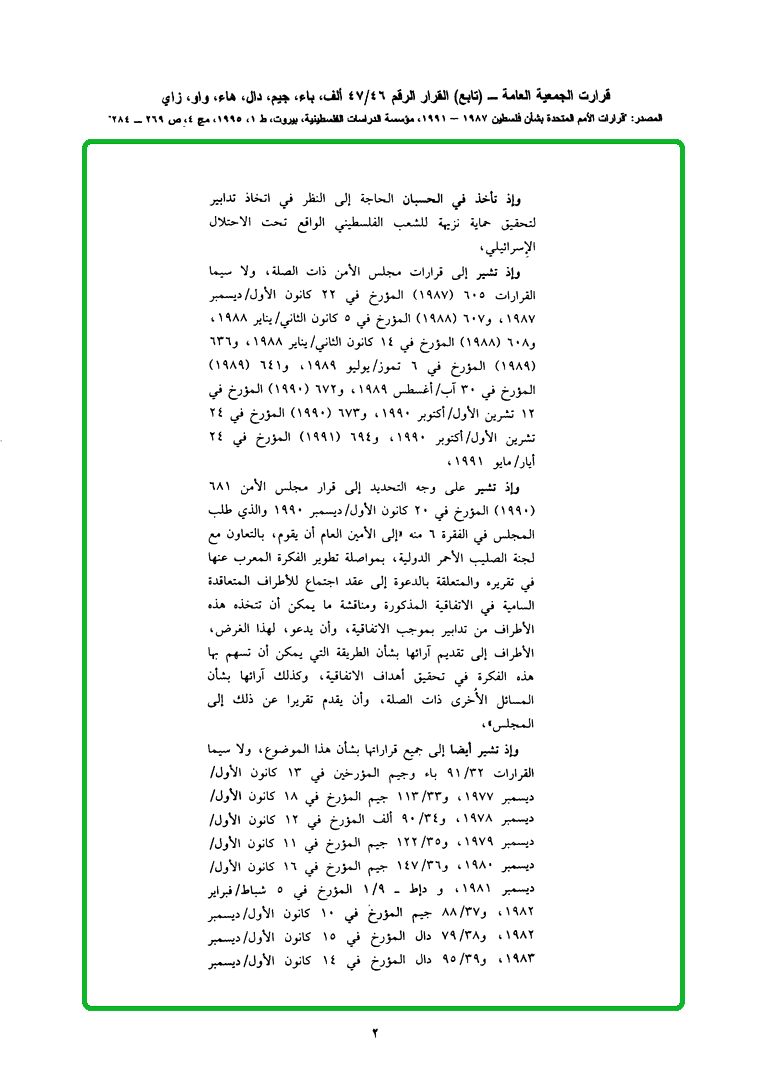 قرارت الجمعية العامة ــ (تابع) القرار الرقم ٤٧/٤٦ ألف، باء، جيم، دال، هاء، واو، زاي
المصدر: "قرارات الأمم المتحدة بشأن فلسطين ١٩٨٧ – ١٩٩١، مؤسسة الدراسات الفلسطينية، بيروت، ط ١، ١٩٩٥، مج ٤، ص ٢٦٩ ــ ٢٨٤"
وإذ تأخذ في الحسبان الحاجة إلى النظر في اتخاذ تدابير
لتحقيق حماية نزيهة للشعب الفلسطيني الواقع تحت الاحتلال
الإسرائيلي،
وإذ تشير إلى قرارات مجلس الأمن ذات الصلة، ولا سيما
القرارات ٦٠٥ (١٩٨٧) المؤرخ في ٢٢ كانون الأول/ديسمبر
١٩٨٧، و٦٠٧ (١٩٨٨) المؤرخ في ٥ كانون الثاني/يناير ١٩٨٨،
و٦٠٨ (١٩٨٨) المؤرخ في ١٤ كانون الثاني/يناير ١٩٨٨، و٦٣٦
(١٩٨٩) المؤرخ في ٦ تموز/يوليو ١٩٨٩، و٦٤١ (١٩٨٩)
المؤرخ في ٣٠ آب/أغسطس ١٩٨٩، و٦٧٢ (١٩٩٠) المؤرخ في
١٢ تشرين الأول/أكتوبر ١٩٩٠، و٦٧٣ (١٩٩٠) المؤرخ في ٢٤
تشرين الأول/أكتوبر ١٩٩٠، و٦٩٤ (١٩٩١) المؤرخ في ٢٤
أيار/مايو ١٩٩١،
وإذ تشير على وجه التحديد إلى قرار مجلس الأمن ٦٨١
(١٩٩٠) المؤرخ في ٢٠ كانون الأول/ديسمبر ١٩٩٠ والذي طلب
المجلس في الفقرة ٦ منه «إلى الأمين العام أن يقوم، بالتعاون مع
لجنة الصليب الأحمر الدولية، بمواصلة تطوير الفكرة المعرب عنها
في تقريره والمتعلقة بالدعوة إلى عقد اجتماع للأطراف المتعاقدة
السامية في الاتفاقية المذكورة ومناقشة ما يمكن أن تتخذه هذه
الأطراف من تدابير بموجب الاتفاقية، وأن يدعو، لهذا الغرض،
الأطراف إلى تقديم آرائها بشأن الطريقة التي يمكن أن تسهم بها
هذه الفكرة في تحقيق أهداف الاتفاقية، وكذلك آرائها بشأن
المسائل الأخرى ذات الصلة، وأن يقدم تقريرا عن ذلك إلى
المجلس»،
وإذ تشير أيضا إلى جميع قراراتها بشأن هذا الموضوع، ولا سيما
القرارات ٩١/٣٢ باء وجيم المؤرخين في ١٣ كانون الأول/
ديسمبر ١٩٧٧، و١١٣/٣٣ جيم المؤرخ في ١٨ كانون الأول/
ديسمبر ١٩٧٨، و٩٠/٣٤ ألف المؤرخ في ١٢ كانون الأول/
ديسمبر ١٩٧٩، و١٢٢/٣٥ جيم المؤرخ في ١١ كانون الأول/
ديسمبر ١٩٨٠، و١٤٧/٣٦ جيم المؤرخ في ١٦ كانون الأول/
ديسمبر ١٩٨١، و دإط ــ ١/٩ المؤرخ في ٥ شباط/فبراير
١٩٨٢، و٨٨/٣٧ جيم المؤرخ في ١٠ كانون الأول/ديسمبر
١٩٨٢، و٧٩/٣٨ دال المؤرخ في ١٥ كانون الأول/ديسمبر
١٩٨٣، و٩٥/٣٩ دال المؤرخ في ١٤ كانون الأول/ديسمبر
٢